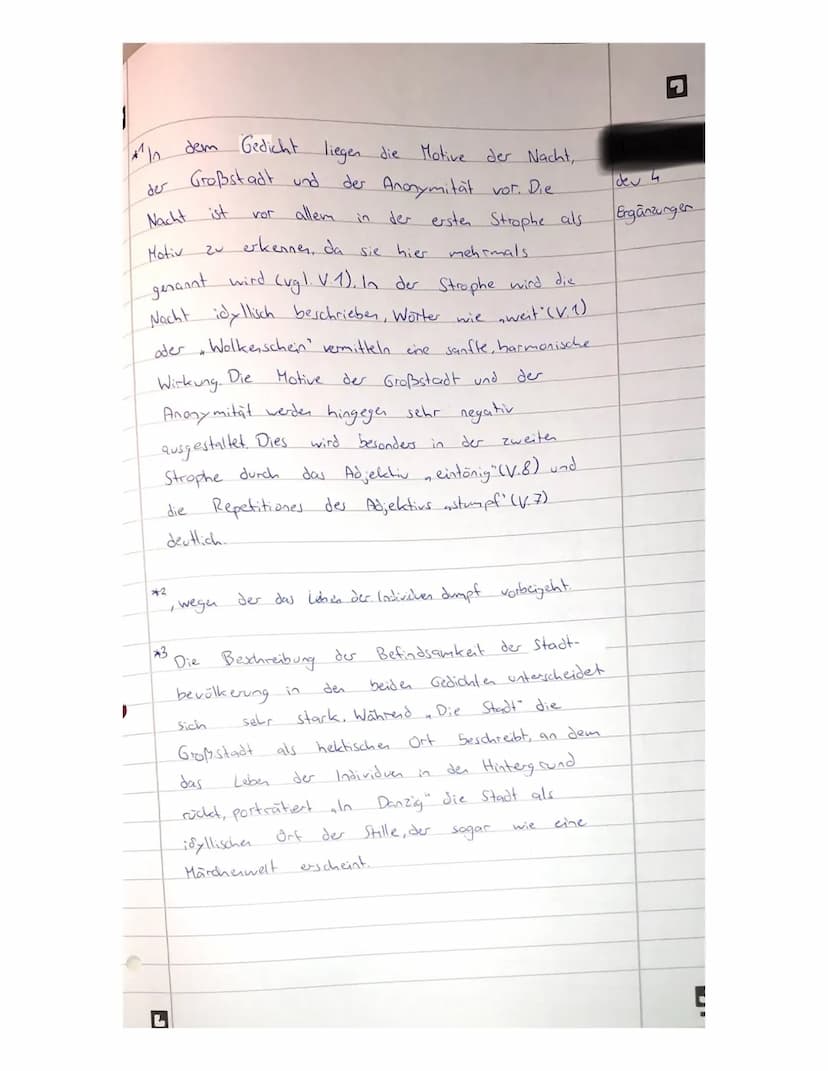 *1 In dem Gedicht liegen die Motive der Nacht,
der Großstadt und der Anonymität vor. Die
Nacht ist vor allem in der ersten Strophe als
Motiv zu erkennen, da sie hier mehrmals
genannt wird (vgl. V.1). In der Strophe wird die
Nacht idyllisch beschrieben, Wörter wie „weit" (V.1)
oder „Wolkenschein" vermitteln eine sanfte, harmonische
Wirkung. Die Motive der Großstadt und der
Anonymität werden hingegen sehr negativ
ausgestaltet. Dies wird besonders in der zweiten
Strophe durch das Adjektiv „eintönig" (V.8) und
die Repetitiones des Adjektivs „stumpf" (V.7)
deutlich.
*2 , wegen der das Leben der Individuen dumpf vorbeigeht.
*3 Die Beschreibung der Befindsamkeit der Stadt-
bevölkerung in den beiden Gedichten unterscheidet
sich sehr stark. Während „Die Stadt" die
Großstadt als hektischen Ort beschreibt, an dem
das Leben der Individuen in den Hintergrund
rückt, porträtiert „In Danzig" die Stadt als
idyllischen Ort der Stille, der sogar wie eine
Märchenwelt erscheint.
4
Ergänzungen